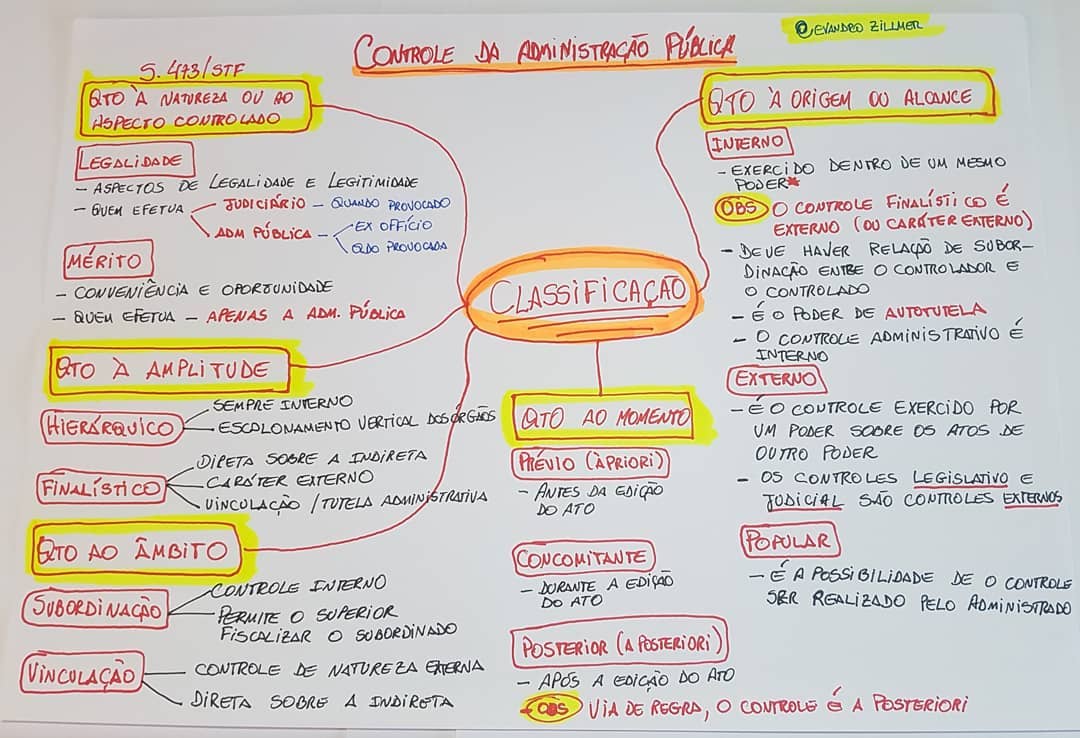 @EVANDRO ZILLMER
CONTROLE DA ADMINISTRAÇÃO PÚBLICA
S. 473/STF
QTO À NATUREZA OU AO
ASPECTO CONTROLADO
LEGALIDADE
- ASPECTOS DE LEGALIDADE E LEGITIMIDADE
- QUEM EFETUA
JUDICIÁRIO - QUANDO PROVOCADO
ADM PÚBLICA -
EX OFFÍCIO
QDO PROVOCADA
MÉRITO
- CONVENIÊNCIA E OPORTUNIDADE
- QUEM EFETUA - APENAS A ADM. PÚBLICA
QTO À AMPLITUDE
HIERÁRQUICO
SEMPRE INTERNO
ESCALONAMENTO VERTICAL DOS ÓRGÃOS
FINALÍSTICO
DIRETA SOBRE A INDIRETA
CARÁTER EXTERNO
VINCULAÇÃO / TUTELA ADMINISTRATIVA
QTO AO ÂMBITO
SUBORDINAÇÃO
CONTROLE INTERNO
PERMITE O SUPERIOR
FISCALIZAR O SUBORDINADO
VINCULAÇÃO
CONTROLE DE NATUREZA EXTERNA
DIRETA SOBRE A INDIRETA
CLASSIFICAÇÃO
QTO AO MOMENTO
PRÉVIO (À PRIORI)
- ANTES DA EDIÇÃO
DO ATO
CONCOMITANTE
- DURANTE A EDIÇÃO
DO ATO
POSTERIOR (A POSTERIORI)
- APÓS A EDIÇÃO DO ATO
- OBS VIA DE REGRA, O CONTROLE É A POSTERIORI
QTO À ORIGEM OU ALCANCE
INTERNO
- EXERCIDO DENTRO DE UM MESMO
PODER*
OBS O CONTROLE FINALÍSTICO É
EXTERNO (OU CARÁTER EXTERNO)
- DEVE HAVER RELAÇÃO DE SUBOR-
DINAÇÃO ENTRE O CONTROLADOR E
O CONTROLADO
- É O PODER DE AUTOTUTELA
- O CONTROLE ADMINISTRATIVO É
INTERNO
EXTERNO
- É O CONTROLE EXERCIDO POR
UM PODER SOBRE OS ATOS DE
OUTRO PODER
- OS CONTROLES LEGISLATIVO E
JUDICIAL SÃO CONTROLES EXTERNOS
POPULAR
- É A POSSIBILIDADE DE O CONTROLE
SER REALIZADO PELO ADMINISTRADO